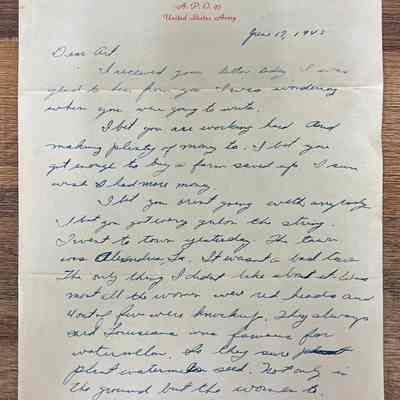 A. P. O. 95
United States Army
Jan 17, 1943
Dear Art
I received your letter today I was
glad to hear from you I was wondering
when you were going to write.
I bet you are working hard and
making plenty of money to. I bet you
got enough to buy a farm saved up. I sure
wish I had more money.
I bet you arent going with anybody
I bet you got every on the string.
I went to town yesterday. The town
was Alexandria La. It wasn't a bad town
The only thing I didn't like about it was
most all the women were red heads and
4 out of five were knocked up. They always
said Louisiana was famous for
watermelon. So they sure
plant watermelon seed. Not only in
the ground but the women to.